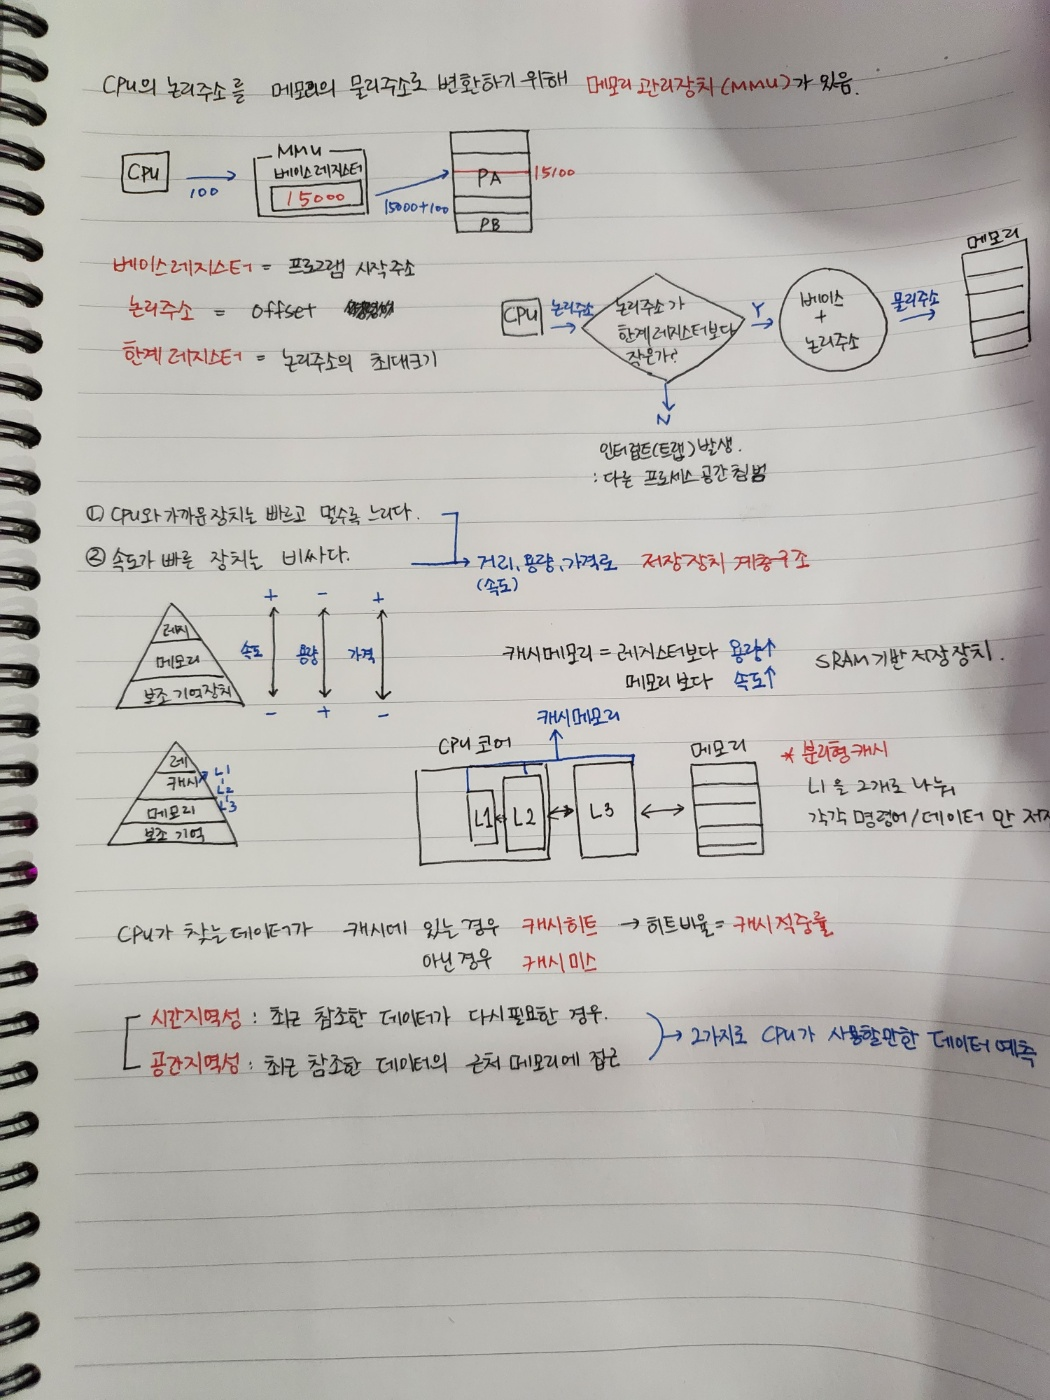 CPU의 논리주소를 메모리의 물리주소로 변환하기 위해 메모리 관리장치(MMU)가 있음.
CPU
100
MMU
베이스레지스터
15000
15000+100
PA
15100
PB
베이스레지스터 = 프로그램 시작주소
논리주소 = offset
한계 레지스터 = 논리주소의 최대크기
CPU
논리주소
논리주소가
한계레지스터보다
작은가?
Y
베이스
+
논리주소
물리주소
메모리
N
인터럽트(트랩)발생.
: 다른 프로세스 공간침범
① CPU와 가까운 장치는 빠르고 멀수록 느리다.
② 속도가 빠른 장치는 비싸다.
거리, 용량, 가격로 저장장치 계층구조
(속도)
레지
메모리
보조 기억장치
+ - +
속도 용량 가격
- + -
캐시메모리 = 레지스터보다 용량↑
메모리보다 속도↑
SRAM기반 저장장치.
레
캐시
L1
L2
L3
메모리
보조 기억
캐시메모리
CPU 코어
L1
L2
L3
메모리
* 분리형캐시
L1을 2개로 나눠
각각 명령어/데이터 만 저
CPU가 찾는데이터가 캐시에 있는경우 캐시히트 → 히트비율 = 캐시적중률
아닌경우 캐시미스
시간지역성 : 최근 참조한 데이터가 다시필요한 경우.
공간지역성 : 최근 참조한 데이터의 근처 메모리에 접근
→ 2가지로 CPU가 사용할만한 데이터 예측